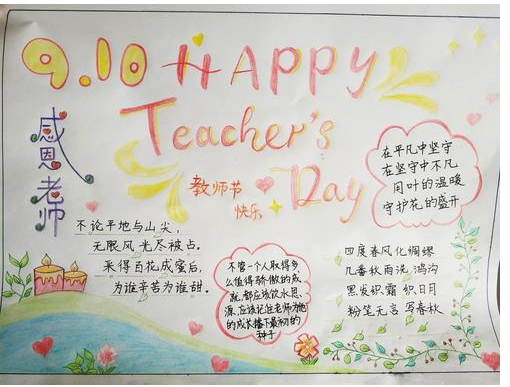 9.10 HAPPY
Teacher's
Day
感恩老师
教师节
快乐
在平凡中坚守
在坚守中不凡
用叶的温暖
守护花的盛开
不论平地与山尖,
无限风光尽被占。
采得百花成蜜后,
为谁辛苦为谁甜。
不管一个人取得多
么值得骄傲的成
就,都应该饮水思
源,应该记住老师为他
的成长播下最初的
种子
四度春风化绸缪
几番秋雨洗鸿沟
黑发织霜织日月
粉笔无言写春秋